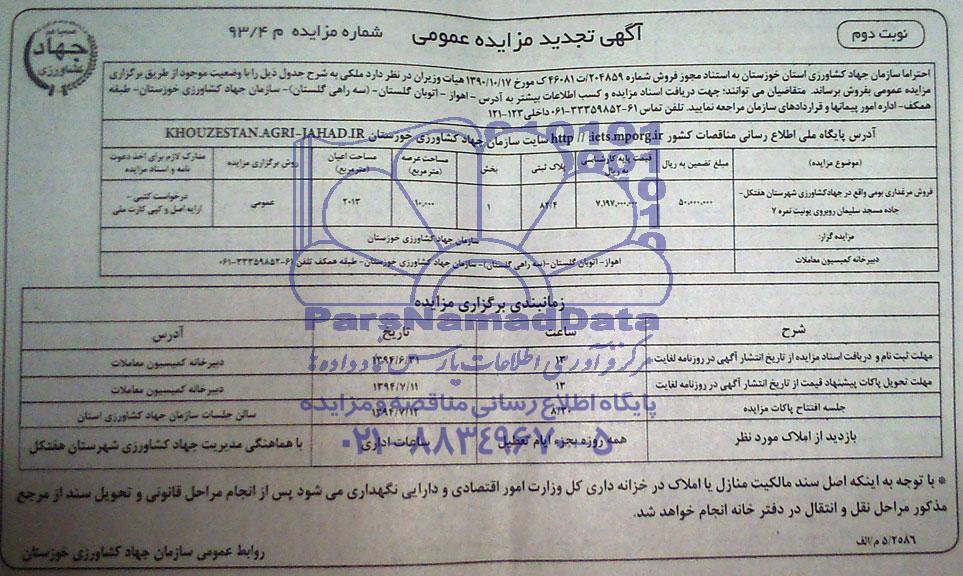 نوبت دوم
آگهی تجدید مزایده عمومی
شماره مزایده م ۹۳/۴
جهاد کشاورزی
احتراما سازمان جهاد کشاورزی استان خوزستان به استناد مجوز فروش شماره ۲۰۴۸۵۹/ت ۴۶۰۸۱ ک مورخ ۱۳۹۰/۱۰/۱۷ هیات وزیران در نظر دارد ملکی به شرح جدول ذیل را با وضعیت موجود از طریق برگزاری
مزایده عمومی بفروش برساند. متقاضیان می توانند: جهت دریافت اسناد مزایده و کسب اطلاعات بیشتر به آدرس - اهواز - اتوبان گلستان- (سه راهی گلستان)- سازمان جهاد کشاورزی خوزستان- طبقه
همکف- اداره امور پیمانها و قراردادهای سازمان مراجعه نمایید. تلفن تماس ۶۱-۳۳۳۵۹۸۵۲-۰۶۱ داخلی ۱۲۳-۱۲۱
آدرس پایگاه ملی اطلاع رسانی مناقصات کشور http // :iets.mporg.ir سایت سازمان جهاد کشاورزی خوزستان KHOUZESTAN.AGRI-JAHAD.IR
(موضوع مزایده) مبلغ تضمین به ریال قیمت پایه کارشناسی به ریال پلاک ثبتی بخش مساحت عرصه (مترمربع) مساحت اعیان (مترمربع) روش برگزاری مزایده مدارک لازم برای اخذ دعوت نامه و اسناد مزایده
فروش مرغداری بومی واقع در جهادکشاورزی شهرستان هفتکل- جاده مسجد سلیمان روبروی یونیت نمره ۷ ۵۰,۰۰۰,۰۰۰ ۷,۱۹۷,۰۰۰,۰۰۰ ۸۴/۴ ۱ ۱۰,۰۰۰ ۲۰۱۳ عمومی درخواست کتبی - ارایه اصل و کپی کارت ملی
مزایده گزار: سازمان جهاد کشاورزی خوزستان
دبیرخانه کمیسیون معاملات اهواز- اتوبان گلستان-(سه راهی گلستان)- سازمان جهاد کشاورزی خوزستان- طبقه همکف تلفن ۶۱-۳۳۳۵۹۸۵۲-۰۶۱
زمانبندی برگزاری مزایده
شرح ساعت تاریخ آدرس
مهلت ثبت نام و دریافت اسناد مزایده از تاریخ انتشار آگهی در روزنامه لغایت ۱۳ ۱۳۹۴/۶/۳۱ دبیرخانه کمیسیون معاملات
مهلت تحویل پاکات پیشنهاد قیمت از تاریخ انتشار آگهی در روزنامه لغایت ۱۳ ۱۳۹۴/۷/۱۱ دبیرخانه کمیسیون معاملات
جلسه افتتاح پاکات مزایده ۸/۳۰ ۱۳۹۴/۷/۱۲ سالن جلسات سازمان جهاد کشاورزی استان
بازدید از املاک مورد نظر همه روزه بجزء ایام تعطیل ساعات اداری با هماهنگی مدیریت جهاد کشاورزی شهرستان هفتکل
* با توجه به اینکه اصل سند مالکیت منازل یا املاک در خزانه داری کل وزارت امور اقتصادی و دارایی نگهداری می شود پس از انجام مراحل قانونی و تحویل سند از مرجع
مذکور مراحل نقل و انتقال در دفتر خانه انجام خواهد شد.
۵/۲۵۸۶ م/الف
روابط عمومی سازمان جهاد کشاورزی خوزستان
ParsNamadData
مرکز فرآوری اطلاعات پارس نماد داده ها
پایگاه اطلاع رسانی مناقصه و مزایده
۰۲۱-۸۸۳۴۹۶۷۰-۵